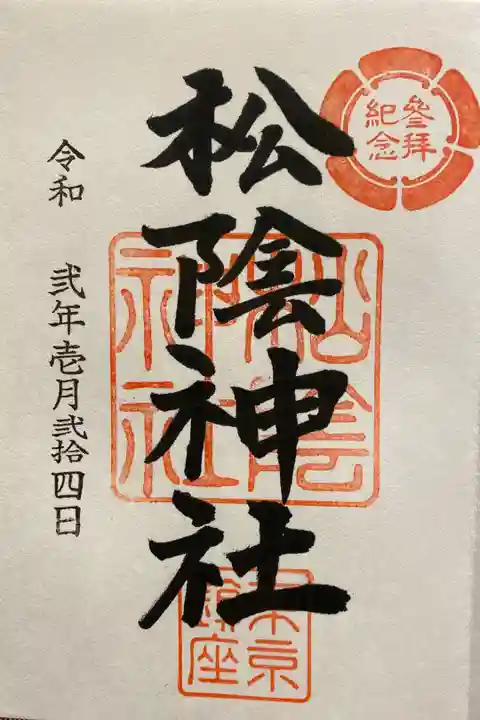 參拝
紀念
松陰神社
松陰
神社
東京
鎮座
令和 弐年壱月弐拾四日